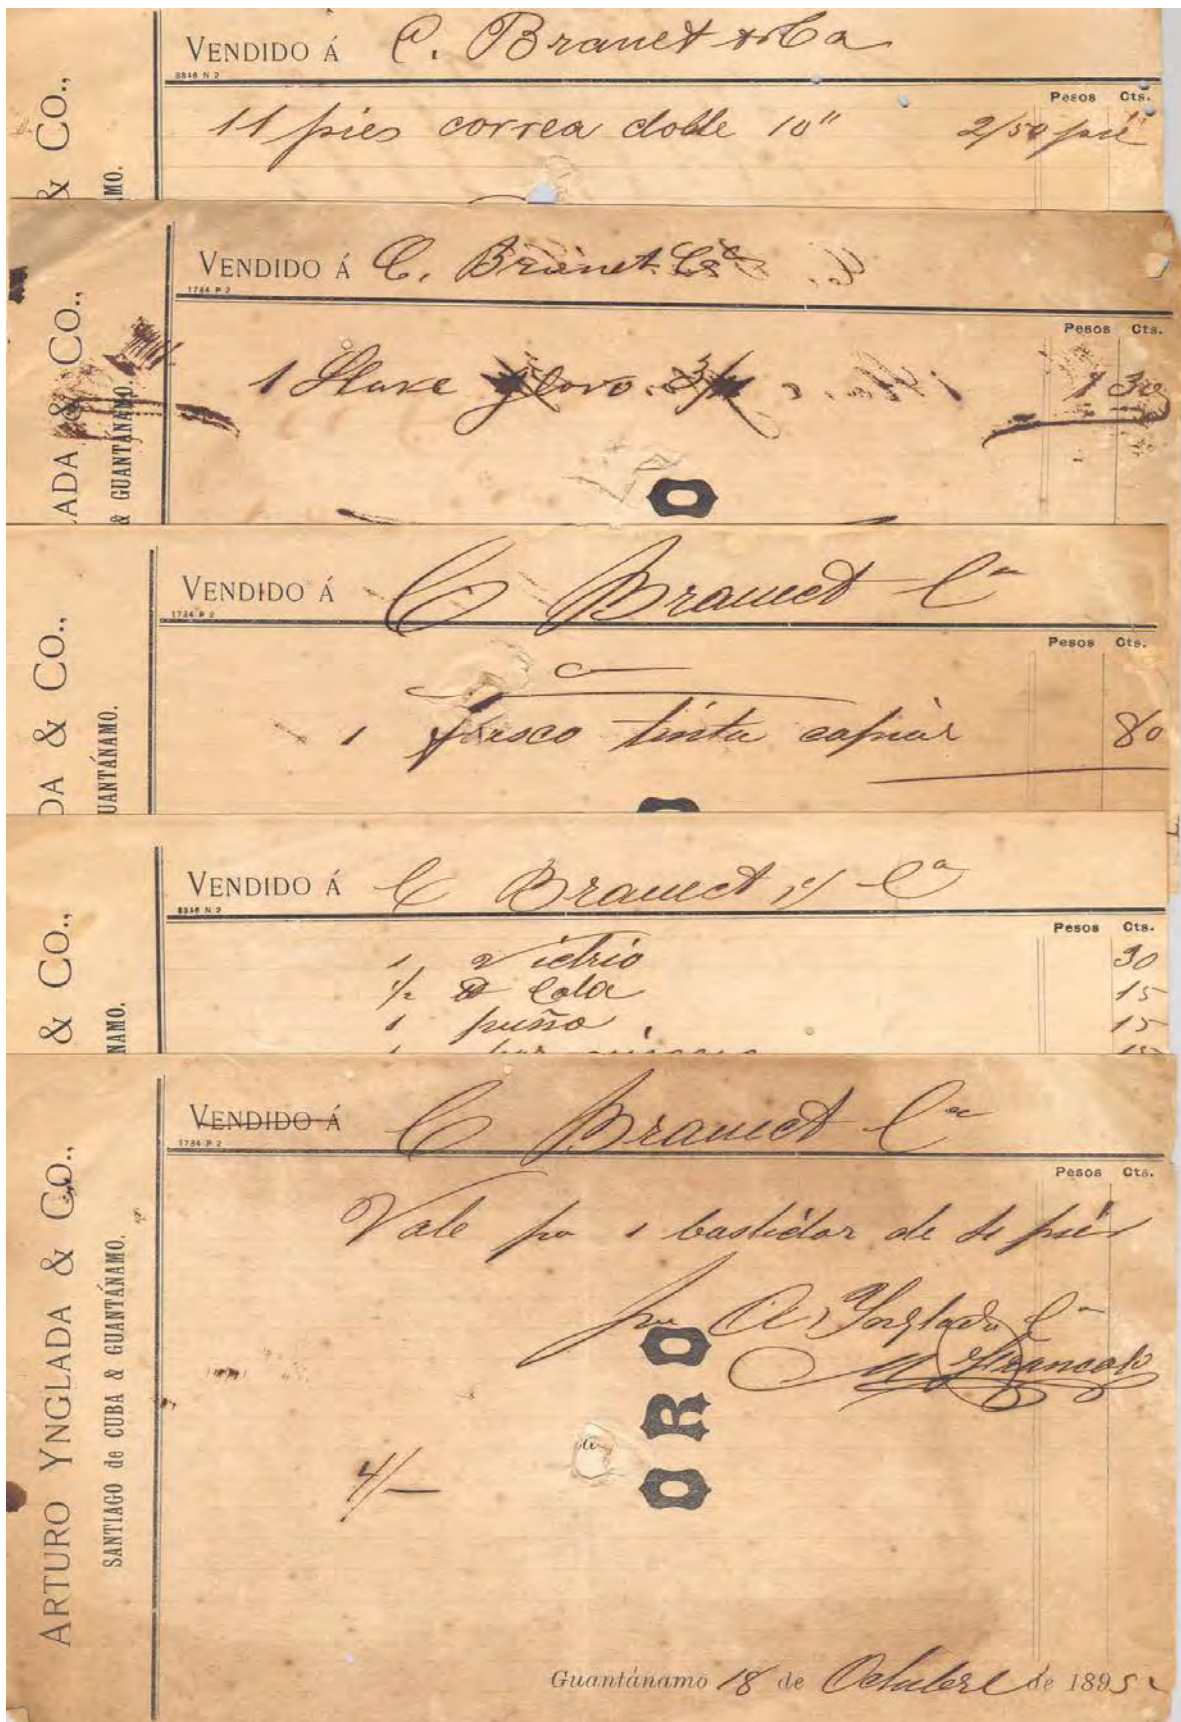 & CO.,
NAMO.
VENDIDO Á C. Branet & Ca
8346 N 2
Pesos Cts.
11 pies correa doble 10" 2/50 pié
LADA & CO.,
& GUANTÁNAMO.
VENDIDO Á C. Branet Ca
1784 P 2
Pesos Cts.
1 Llave 1 30
O
DA & CO.,
GUANTÁNAMO.
VENDIDO Á C Brauet Ca
1784 P 2
Pesos Cts.
1 frasco tinta copiar 80
& CO.,
NAMO.
VENDIDO Á C Brauet y Ca
8346 N 2
Pesos Cts.
1 Victrio 30
1/2 ℔ Cola 15
1 puño 15
15
ARTURO YNGLADA & CO.,
SANTIAGO de CUBA & GUANTÁNAMO.
VENDIDO Á C Brauet Ca
1784 P 2
Pesos Cts.
Vale por 1 bastidor de 4 piés
por A Ynglada Ca
M
ORO
4/—
Guantánamo 18 de Octubre de 1895